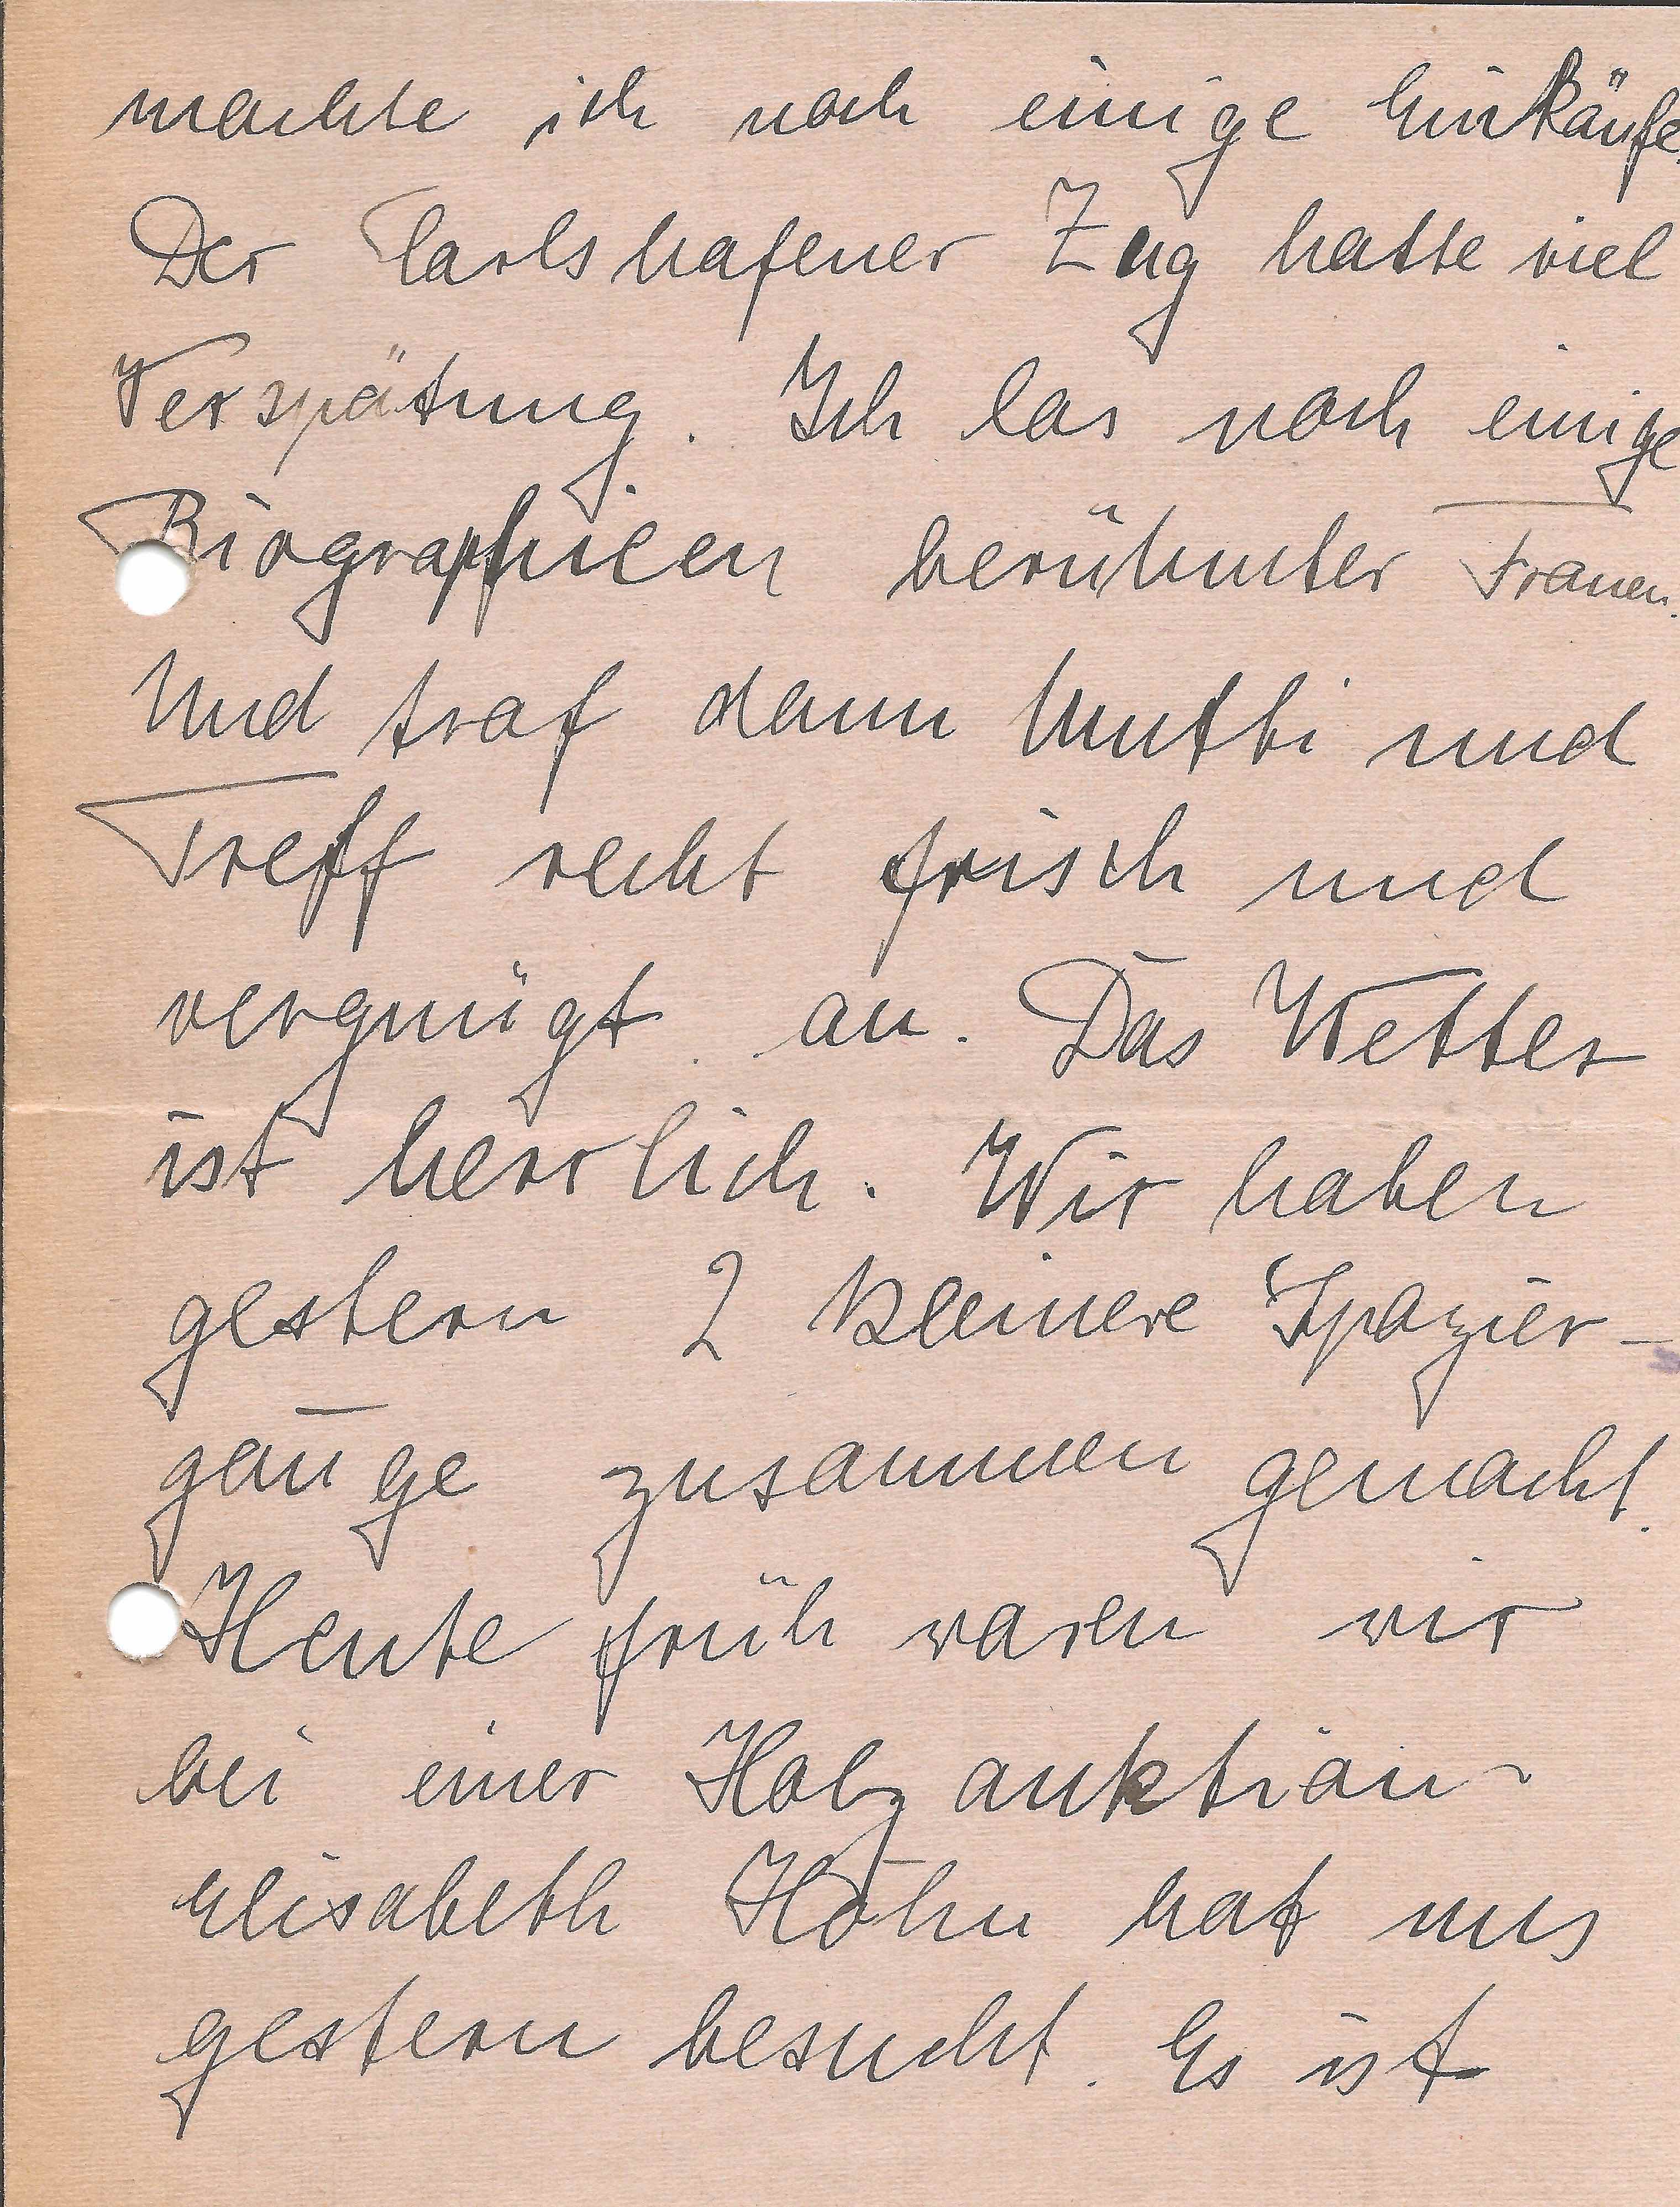 machte ich noch einige Einkäufe.
Der Carlshafener Zug hatte viel
Verspätung. Ich las noch einige
Biographieen berühmter Frauen.
Und traf dann Mutti und
Treff recht frisch und
vergnügt an. Das Wetter
ist herrlich. Wir haben
gestern 2 kleinere Spazier-
gänge zusammen gemacht.
Heute früh waren wir
bei einer Holzauktion
Elisabeth Höhn hat uns
gestern besucht. Es ist